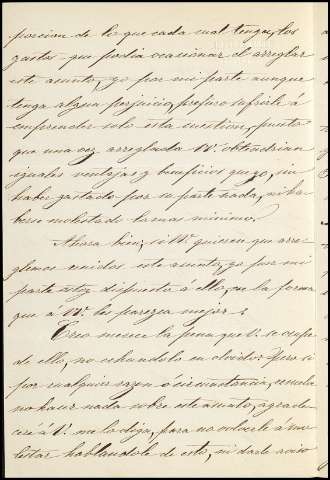 porcion de lo que cada cual tenga, los
gastos que podia ocacionar el arreglar
este asunto, yo por mi parte aunque
tenga algun perjuicio, prefiero sufrirle á
emprender solo esta cuestion, puesto
que una vez arreglada Vs. obtendrian
iguales ventajas y beneficios que yo, sin
haber gastado por su parte nada, ni ha-
berse molestado lo mas minimo.
Ahora bien, si Vs. quieren que arre-
glemos unidos este asunto, yo por mi
parte estoy dispuesto á ello, en la forma
que á Vs. les parezca mejor;
Creo merece la pena que V. se ocupe
de ello, no echandolo en olvido: Pero si
por cualquier razon ó circunstancia,
no hacer nada sobre este asunto, agrade-
ceré á V. me lo diga, para no volverle á mo-
lestar hablandole de esto, ni darle aviso